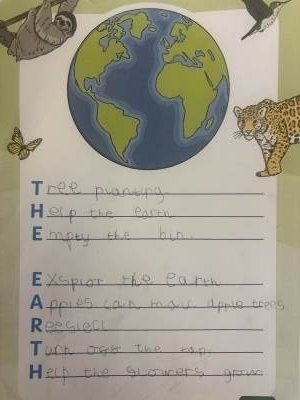 Tree planting.
Help the earth
Empty the bin.
Explor the earth
Apples can mace apple trees
Reesiecl
Turn off the tap.
Help the flowers grow